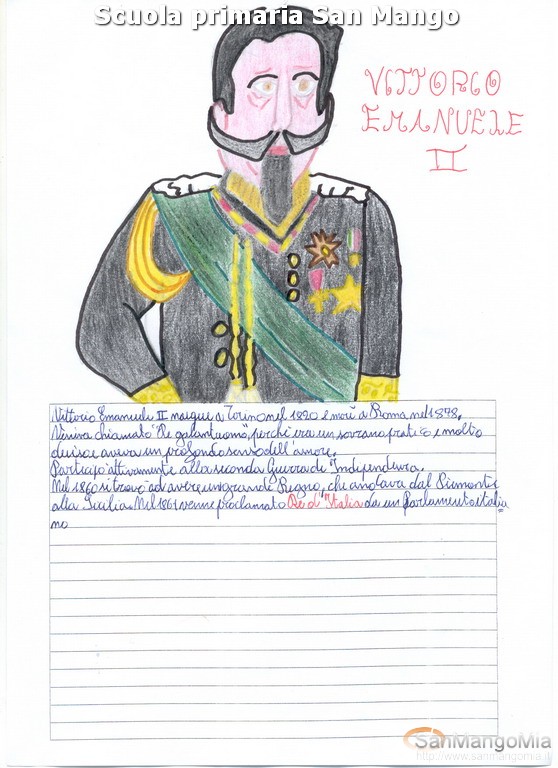 Scuola primaria San Mango
VITTORIO
EMANUELE
II
Vittorio Emanuele II nacque a Torino nel 1820 e morì a Roma nel 1878.
Veniva chiamato "Re galantuomo", perchè era un sovrano pratico e molto
deciso e aveva un profondo senso dell'amore.
Partecipò attivamente alla seconda Guerra di "Indipendenza.
Nel 1860 si trovò ad avere un grande Regno, che andava dal Piemonte
alla Sicilia. Nel 1861 venne proclamato Re d'Italia da un parlamento italia=
no
SanMangoMia
http://www.sanmangomia.it